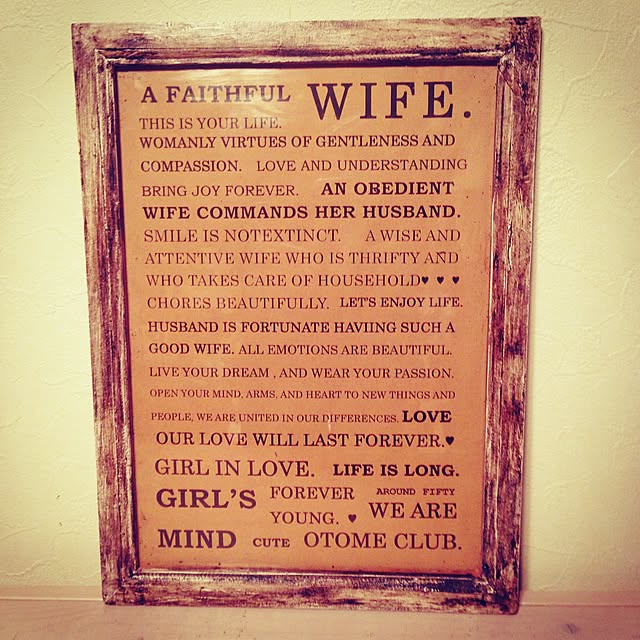 A FAITHFUL WIFE.
THIS IS YOUR LIFE.
WOMANLY VIRTUES OF GENTLENESS AND
COMPASSION. LOVE AND UNDERSTANDING
BRING JOY FOREVER. AN OBEDIENT
WIFE COMMANDS HER HUSBAND.
SMILE IS NOTEXTINCT. A WISE AND
ATTENTIVE WIFE WHO IS THRIFTY AND
WHO TAKES CARE OF HOUSEHOLD♥ ♥ ♥
CHORES BEAUTIFULLY. LET'S ENJOY LIFE.
HUSBAND IS FORTUNATE HAVIING SUCH A
GOOD WIFE. ALL EMOTIONS ARE BEAUTIFUL.
LIVE YOUR DREAM , AND WEAR YOUR PASSION.
OPEN YOUR MIND, ARMS, AND HEART TO NEW THINGS AND
PEOPLE, WE ARE UNITED IN OUR DIFFERENCES. LOVE
OUR LOVE WILL LAST FOREVER.♥
GIRL IN LOVE. LIFE IS LONG.
GIRL'S FOREVER AROUND FIFTY
YOUNG. ♥ WE ARE
MIND CUTE OTOME CLUB.